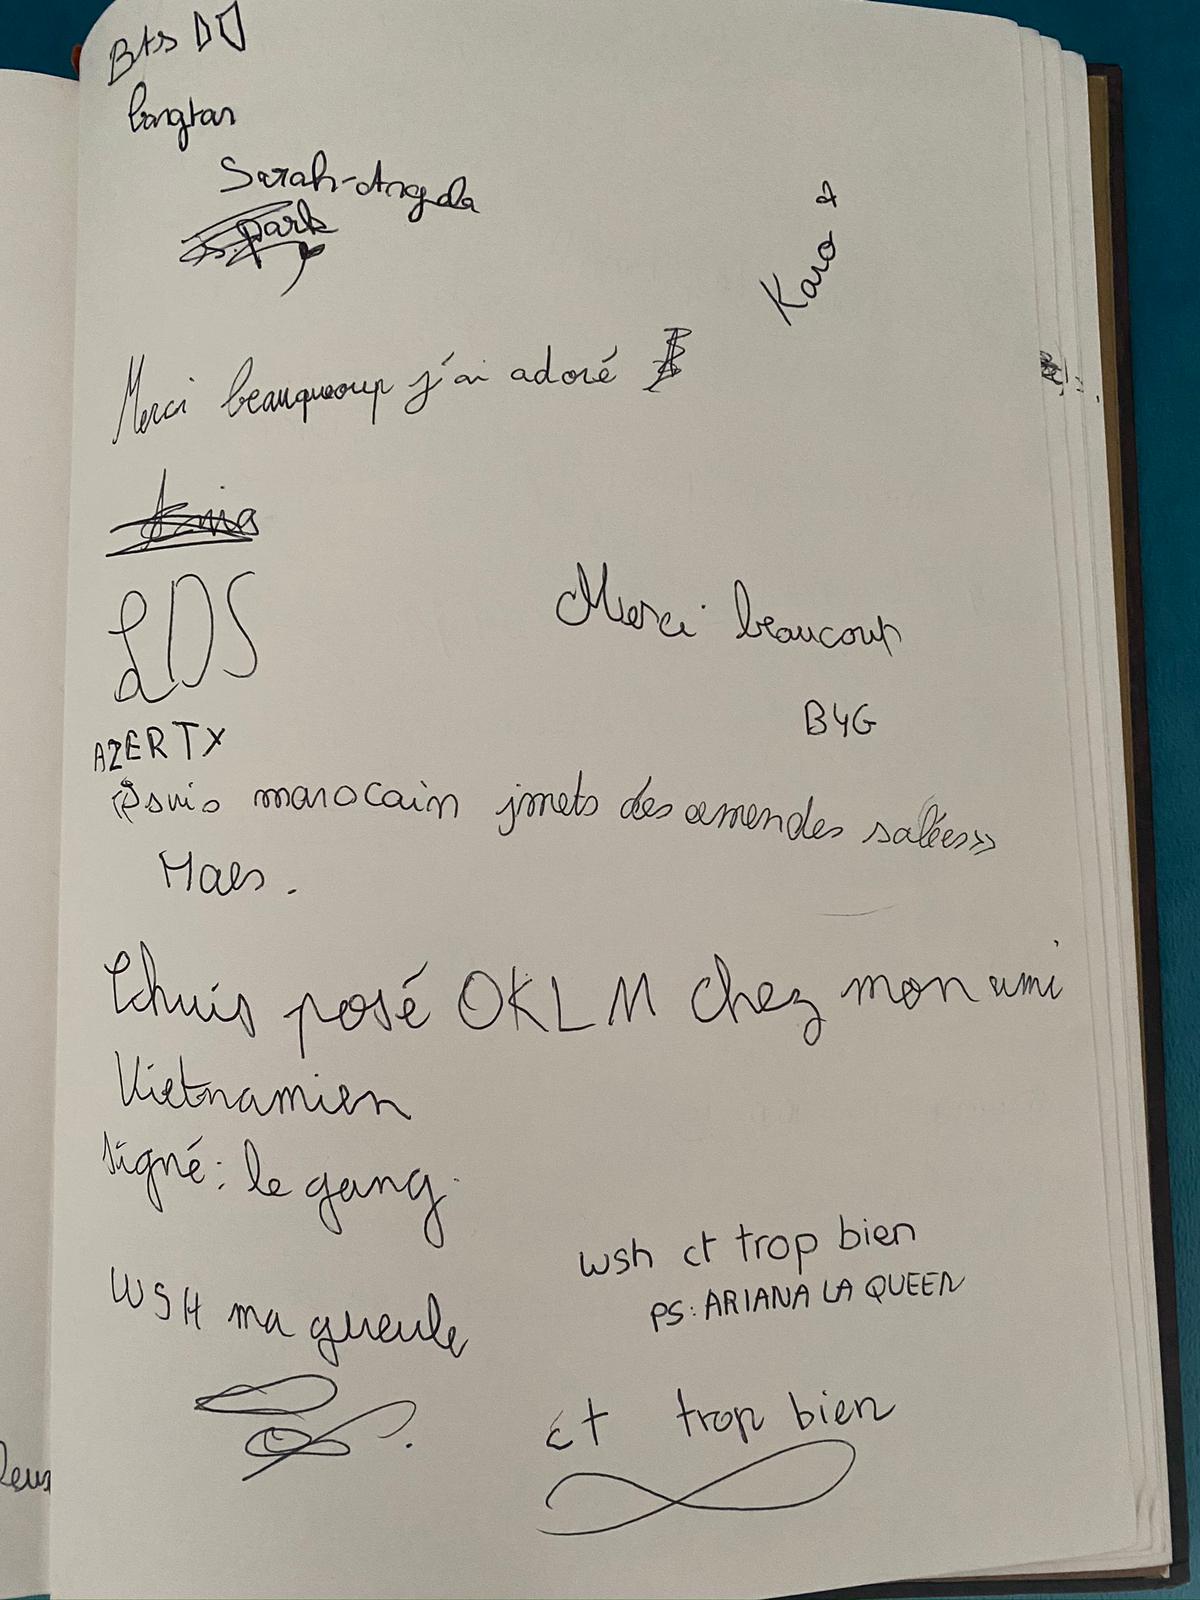 Bts
bangtan
Sarah-Angela
S. park
Karo
Merci beauqucoup j'ai adoré
LDS
Merci beaucoup
B4G
AZERTY
"Jsuis marocain jmets des amendes salées»
Maes.
Chuis posé OKLM chez mon ami
Vietnamien
signé: le gang.
wsh ct trop bien
PS: ARIANA LA QUEEN
WSH ma gueule
ct trop bien